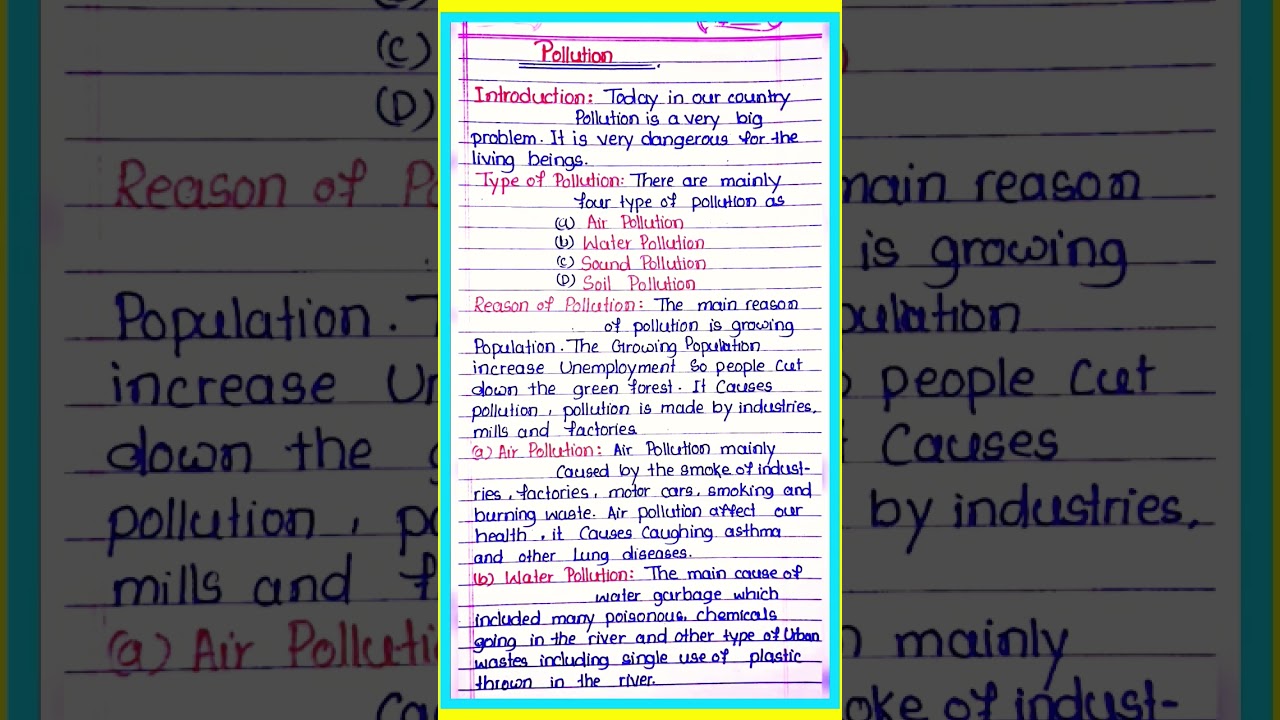 Pollution
Introduction: Today in our country
Pollution is a very big
problem. It is very dangerous for the
living beings.
Type of Pollution: There are mainly
four type of pollution as
(a) Air Pollution
(b) Water Pollution
(c) Sound Pollution
(D) Soil Pollution
Reason of Pollution: The main reason
of pollution is growing
Population. The Growing Population
increase Unemployment So people cut
down the green forest. It Causes
pollution, pollution is made by industries,
mills and factories
(a) Air Pollution: Air Pollution mainly
Caused by the smoke of indust-
ries, factories, motor cars, smoking and
burning waste. Air pollution affect our
health, it Causes Caughing asthma
and other Lung diseases.
(b) Water Pollution: The main cause of
water garbage which
included many poisonous, chemicals
going in the river and other type of Urban
wastes including single use of plastic
thrown in the river.
(C)
(D)
Reason of Po
main reason
is growing
Population. T
pulation
increase Un
people cut
down the
Causes
pollution, po
by industries,
mills and f
(a) Air Polluti
mainly
Cau
oke of indust-